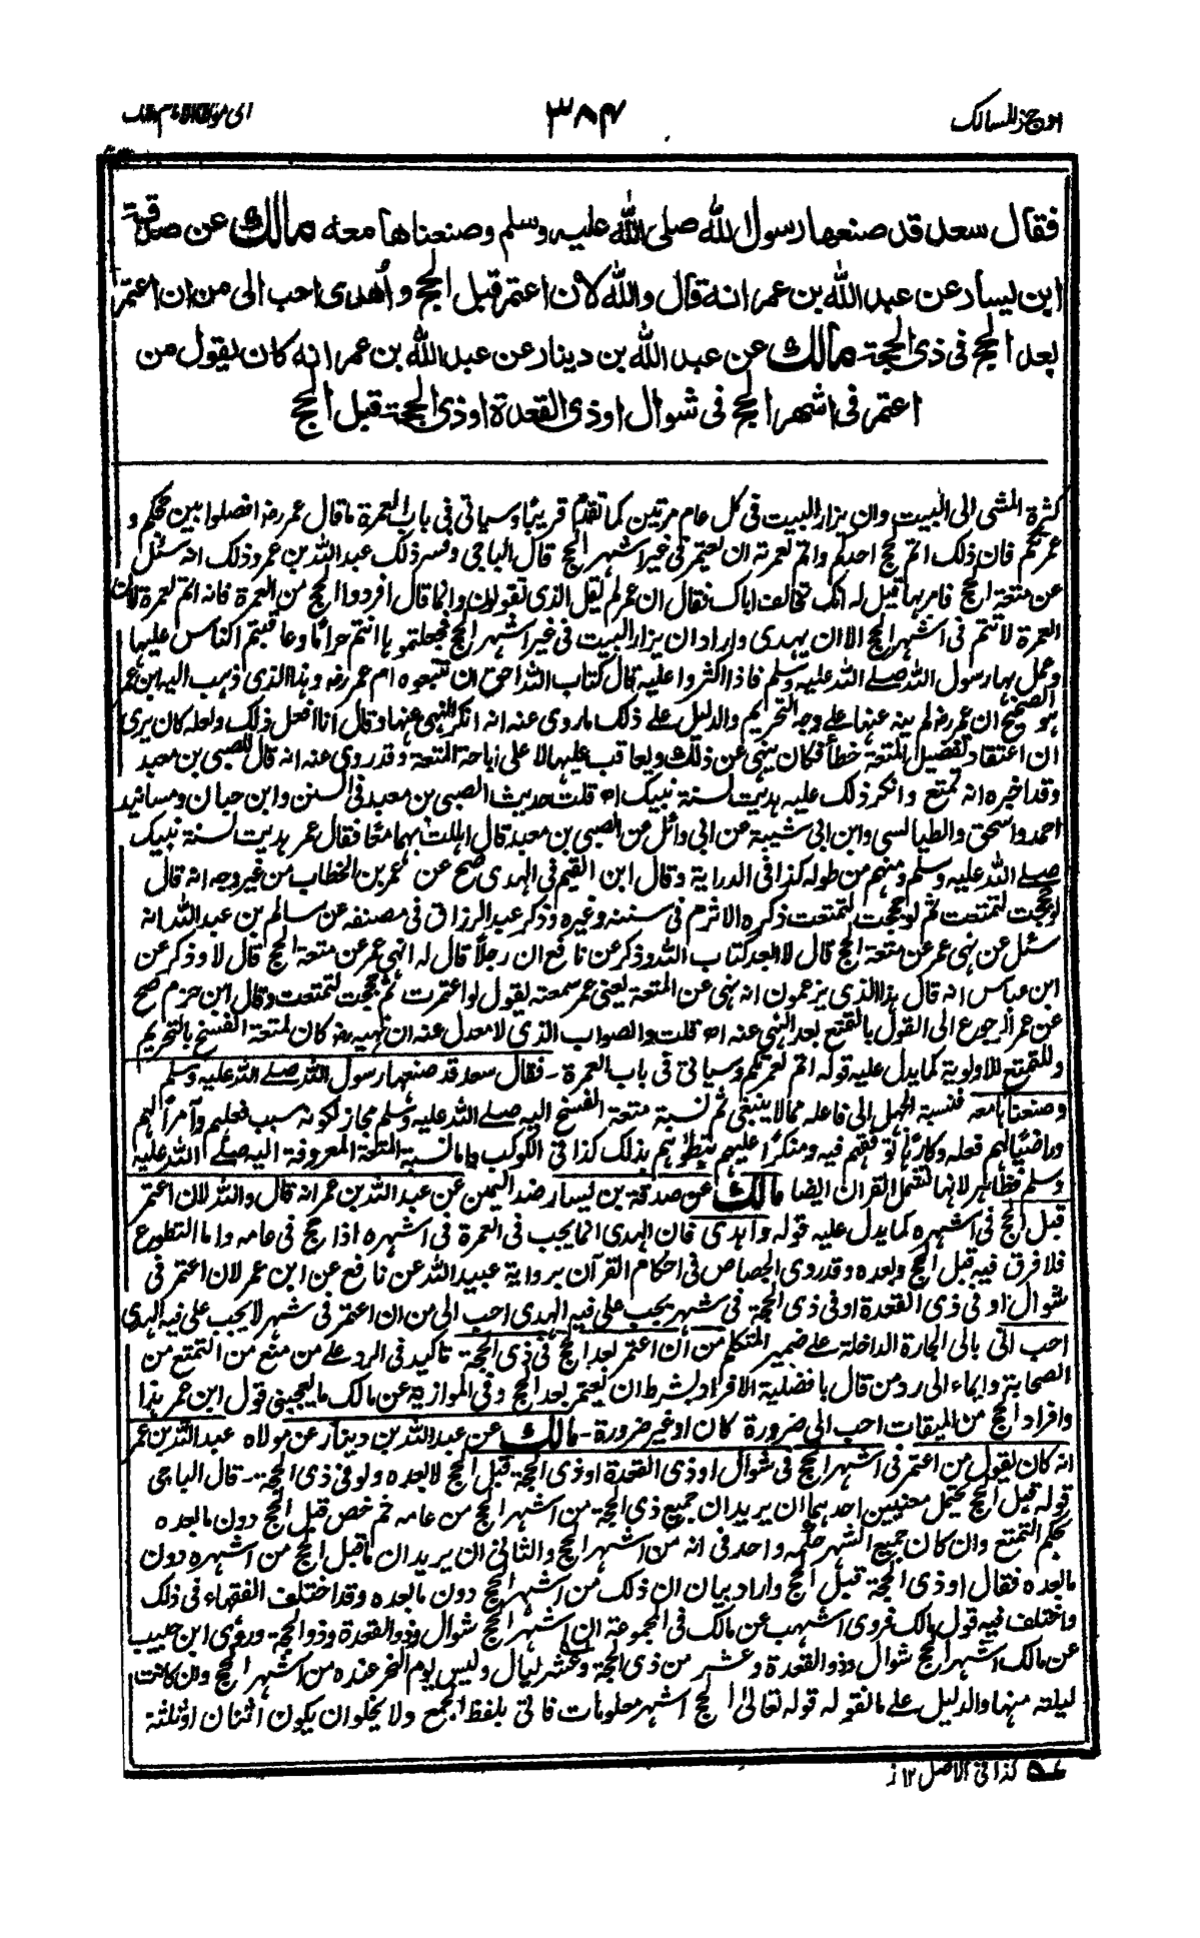 اوجز المسالك
٣٨٤
الى موطا الامام مالك
فقال سعد قد صنعها رسول الله صلى الله عليه وسلم وصنعناها معه مالك عن صدقة
ابن يسار عن عبد الله بن عمر انه قال والله لان اعتمر قبل الحج وأهدى احب الى من ان اعتمر
بعد الحج فى ذى الحجة مالك عن عبد الله بن دينار عن عبد الله بن عمر انه كان يقول من
اعتمر فى اشهر الحج فى شوال او ذى القعدة او ذى الحجة قبل الحج
كثرة المشى الى البيت وان يزار البيت فى كل عام مرتين كما تقدم قريبًا وسياتى فى باب العمرة ما قال عمر رضہ افصلوا بين حجكم و
عمرتكم فان ذلك اتم لحج احدكم واتم لعمرته ان يعتمر فى غير اشهر الحج قال الباجى وفسر ذلك عبد الله بن عمر وذلك انه سئل
عن متعة الحج فامر بها قيل له انك تخالف اباك فقال ان عمر لم يقل الذى تقولون وانما قال افردوا الحج من العمرة فانه اتم لعمرة لان
العمرة لا تتم فى اشهر الحج الا ان يهدى واراد ان يزار البيت فى غير اشهر الحج فجعلتموها انتم حرامًا وعاقبتم الناس عليها
وعمل بها رسول الله صلے الله عليه وسلم فاذا اكثروا عليه قال كتاب الله احق ان تتبعوه ام عمر رضہ وهذا الذى ذهب اليه ابن عمر
هو الصحيح ان عمر رضہ لم ينه عنها على وجه التحريم والدليل علے ذلك ما روى عنه انه انكر النهى عنها وقال انا افعل ذلك ولعله كان يرى
ان اعتقاد تفضيل المتعة خطأ فكان ينهى عن ذلك ويعاقب عليها لا على اباحة المتعة وقد روى عنه انه قال للصبى بن معبد
وقد اخبره انه تمتع وانكر ذلك عليه هديت لسنة نبيك اھ قلت حديث الصبى بن معبد فى السنن وابن حبان ومسانيد
احمد واسحق والطيالسى وابن ابى شيبة عن ابى وائل عن الصبى بن معبد قال اهللت بهما معًا فقال عمر هديت لسنة نبيك
صلے الله عليه وسلم ومنهم من طوله كذا فى الدراية وقال ابن القيم فى الهدى صح عن عمر بن الخطاب من غير وجه انه قال
لو حججت لتمتعت ثم لو حججت لتمتعت ذكره الاثرم فى سننه وغيره وذكر عبد الرزاق فى مصنفه عن سالم بن عبد الله انه
سئل عن نهى عمر عن متعة الحج قال لا ابعد كتاب الله وذكر عن نافع ان رجلًا قال له انهى عمر عن متعة الحج قال لا وذكر عن
ابن عباس انه قال هذا الذى يزعمون انه نهى عن المتعة يعنى عمر سمعته يقول لو اعتمرت ثم حججت لتمتعت وقال ابن حزم صح
عن عمر الرجوع الى القول بالتمتع بعد النهى عنه اھ قلت والصواب الذى لا معدل عنه ان نهيه رضہ كان لمتعة الفسخ بالتحريم
وللتمتع للاولوية كما يدل عليه قوله اتم لعمرتكم وسياتى فى باب العمرة - فقال سعد قد صنعها رسول الله صلے الله عليه وسلم
وصنعناها معه فنسبة الجهل الى فاعله مما لا ينبغى ثم نسبة متعة الفسخ اليه صلے الله عليه وسلم مجاز لكونه سبب فعلهم وآمرًا لهم
وراضيًا لهم فعله وكارهًا توقفهم فيه ومنكرًا عليهم تبطؤهم بذلك كذا فى الكوكب واما نسبة المتعة المعروفة اليه صلے الله عليه
وسلم فظاهر لانها تشمل القران ايضا مالك عن صدقة بن يسار ضد اليمين عن عبد الله بن عمر انه قال والله لان اعتمر
قبل الحج فى اشهره كما يدل عليه قوله واهدى فان الهدى انما يجب فى العمرة فى اشهره اذا حج فى عامه واما التطوع
فلا فرق فيه قبل الحج وبعده وقد روى الجصاص فى احكام القرآن برواية عبيد الله عن نافع عن ابن عمر لان اعتمر فى
شوال او فى ذى القعدة او فى ذى الحجة فى شهر يجب على فيه الهدى احب الى من ان اعتمر فى شهر لا يجب على فيه الهدى
احب الى بالى الجارة الداخلة علے ضمير المتكلم من ان اعتمر بعد الحج فى ذى الحجة تاكيد فى الرد علے من منع من التمتع من
الصحابة وايماء الى رد من قال بافضلية الافراد بشرط ان يعتمر بعد الحج وفى الموازية عن مالك ما يعجبنى قول ابن عمر هذا
وافراد الحج من الميقات احب الى ضرورة كان او غير ضرورة - مالك عن عبد الله بن دينار عن مولاه عبد الله بن عمر
انه كان يقول من اعتمر فى اشهر الحج فى شوال او ذى القعدة او ذى الحجة قبل الحج لا بعده ولو فى ذى الحجة - قال الباجى
قوله قبل الحج يحتمل معنيين احدهما ان يريد ان جميع ذى الحجة من اشهر الحج من عامه ثم خص قبل الحج دون ما بعده
بحكم التمتع وان كان جميع الشهر حكمه واحد فى انه من اشهر الحج والثانى ان يريد ان ما قبل الحج من اشهره دون
ما بعده فقال او ذى الحجة قبل الحج واراد بيان ان ذلك من اشهر الحج دون ما بعده وقد اختلف الفقهاء فى ذلك
واختلف فيه قول مالك فروى اشهب عن مالك فى المجموعة ان اشهر الحج شوال وذو القعدة وذو الحجة وروى ابن حبيب
عن مالك اشهر الحج شوال وذو القعدة وعشر من ذى الحجة وعشر ليال وليس يوم النحر عنده من اشهر الحج وان كانت
ليلته منها والدليل علے ما نقوله قوله تعالىٰ الحج اشهر معلومات فاتى بلفظ الجمع ولا يخلو ان يكون اثنان او ثلثة
كذا فى الاصل ١٢ ز